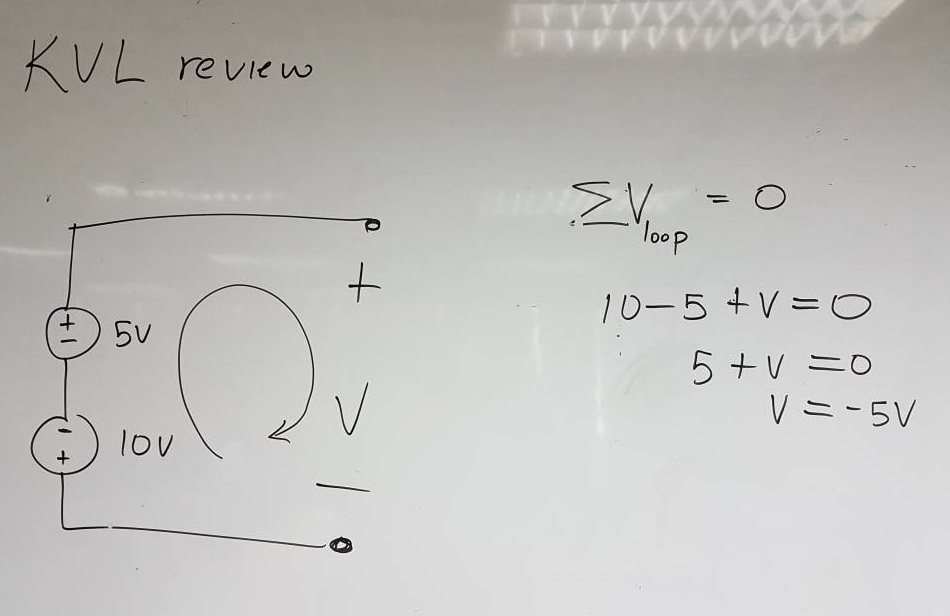 KVL review
ΣV_loop = 0
10-5+V=0
5+V=0
V=-5V
+
+
-
5V
V
-
+
10V
-